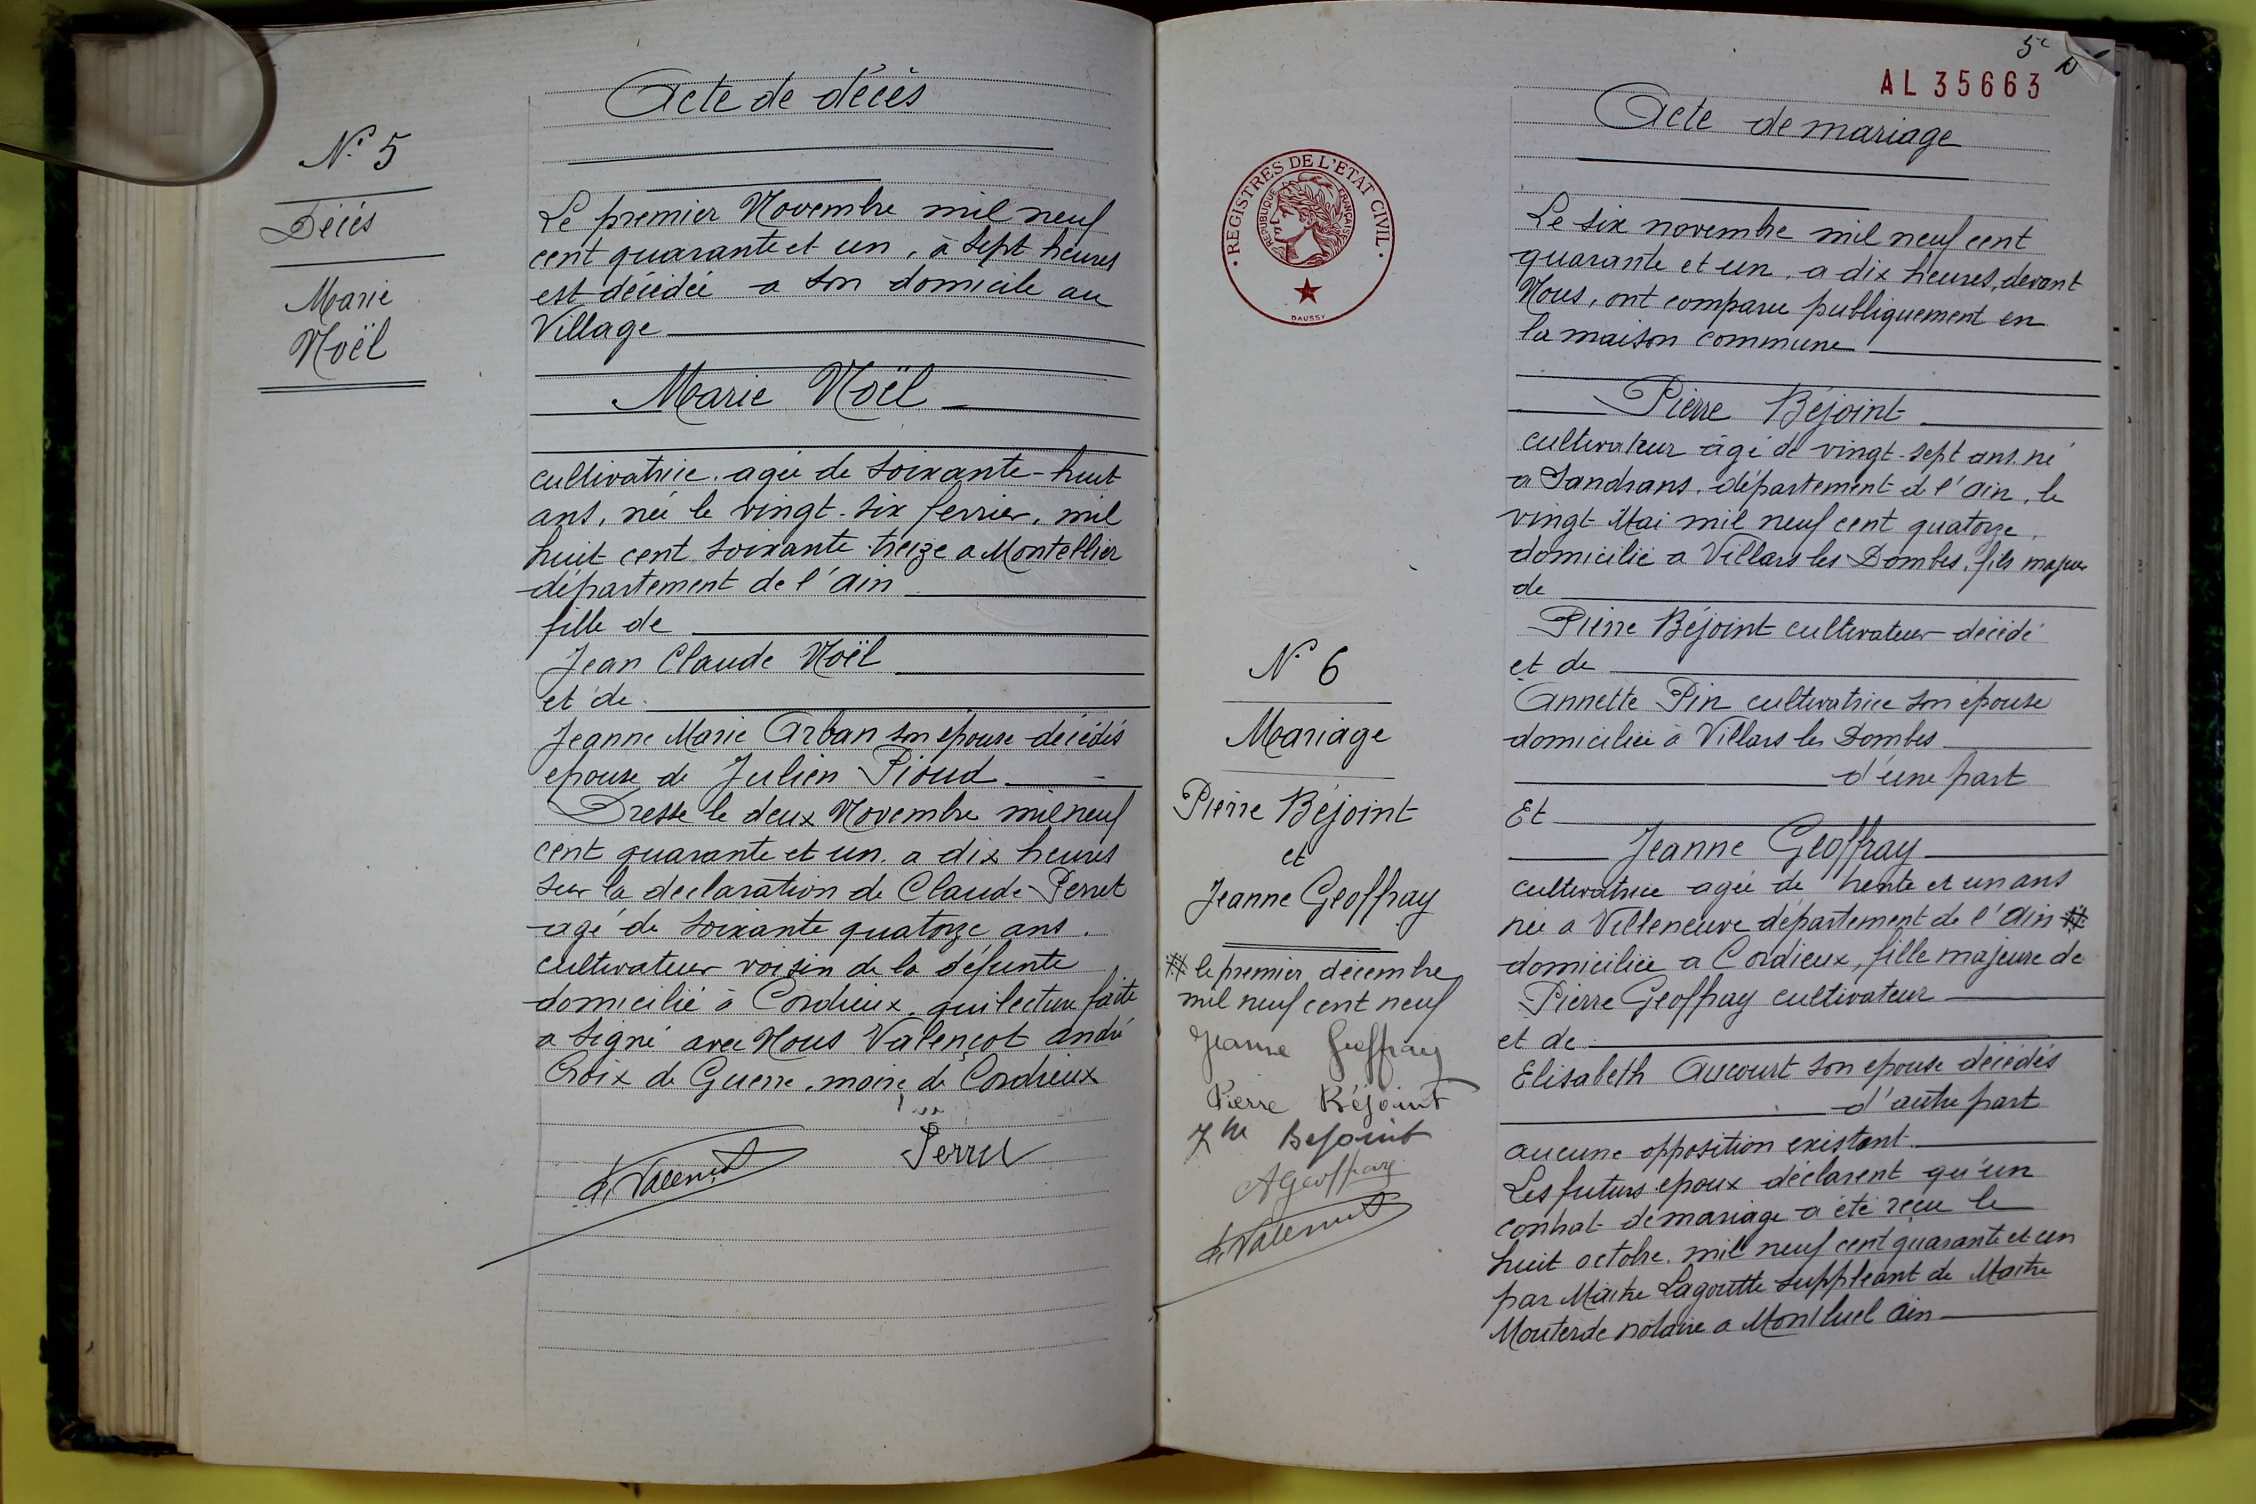 Acte de décès
N° 5
Décès
Marie
Noël
Le premier Novembre mil neuf
cent quarante et un, à sept heures
est décédée a son domicile au
Village
Marie Noël
cultivatrice. agée de soixante-huit
ans, née le vingt-six fevrier, mil
huit cent soixante treize a Montellier
département de l'ain
fille de
Jean Claude Noël
et de
Jeanne Marie Arban son épouse décédés
epouse de Julien Pioud
Dresse le deux Novembre mil neuf
cent quarante et un. a dix heures
sur la declaration de Claude Perret
agé de soixante quatorze ans.
cultivateur voisin de la défunte
domicilié à Cordieux. qui lecture faite
a signé avec Nous Valençot andré
Croix de Guerre, maire de Cordieux
Perret
5e
AL 35663
Acte de mariage
REGISTRES DE L'ETAT CIVIL
REPUBLIQUE FRANÇAISE
DAUSSY
Le six novembre mil neuf cent
quarante et un, a dix heures, devant
Nous, ont comparu publiquement en
la maison commune
Pierre Béjoint
cultivateur âgé de vingt-sept ans. né
a Sandrans. département de l'ain, le
vingt Mai mil neuf cent quatorze,
domicilié a Villars les Dombes, fils majeur
de
Pierre Béjoint cultivateur décédé
et de
Annette Pin cultivatrice son épouse
domiciliée à Villars les Dombes
d'une part
Et
Jeanne Geoffray
cultivatrice agée de trente et un ans
née a Villeneuve département de l'Ain #
domiciliée a Cordieux, fille majeure de
Pierre Geoffray cultivateur
et de
Elisabeth Aucourt son epouse décédés
d'autre part
aucune opposition existant
Les futurs epoux déclarent qu'un
contrat de mariage a été reçu le
huit octobre. mil neuf cent quarante et un
par Maitre Lagoutte suppléant de Maitre
Mouterde notaire a Montluel ain
N° 6
Mariage
Pierre Béjoint
et
Jeanne Geoffray
# le premier décembre
mil neuf cent neuf
Jeanne Geoffray
Pierre Béjoint
Bejoint
A Geoffray